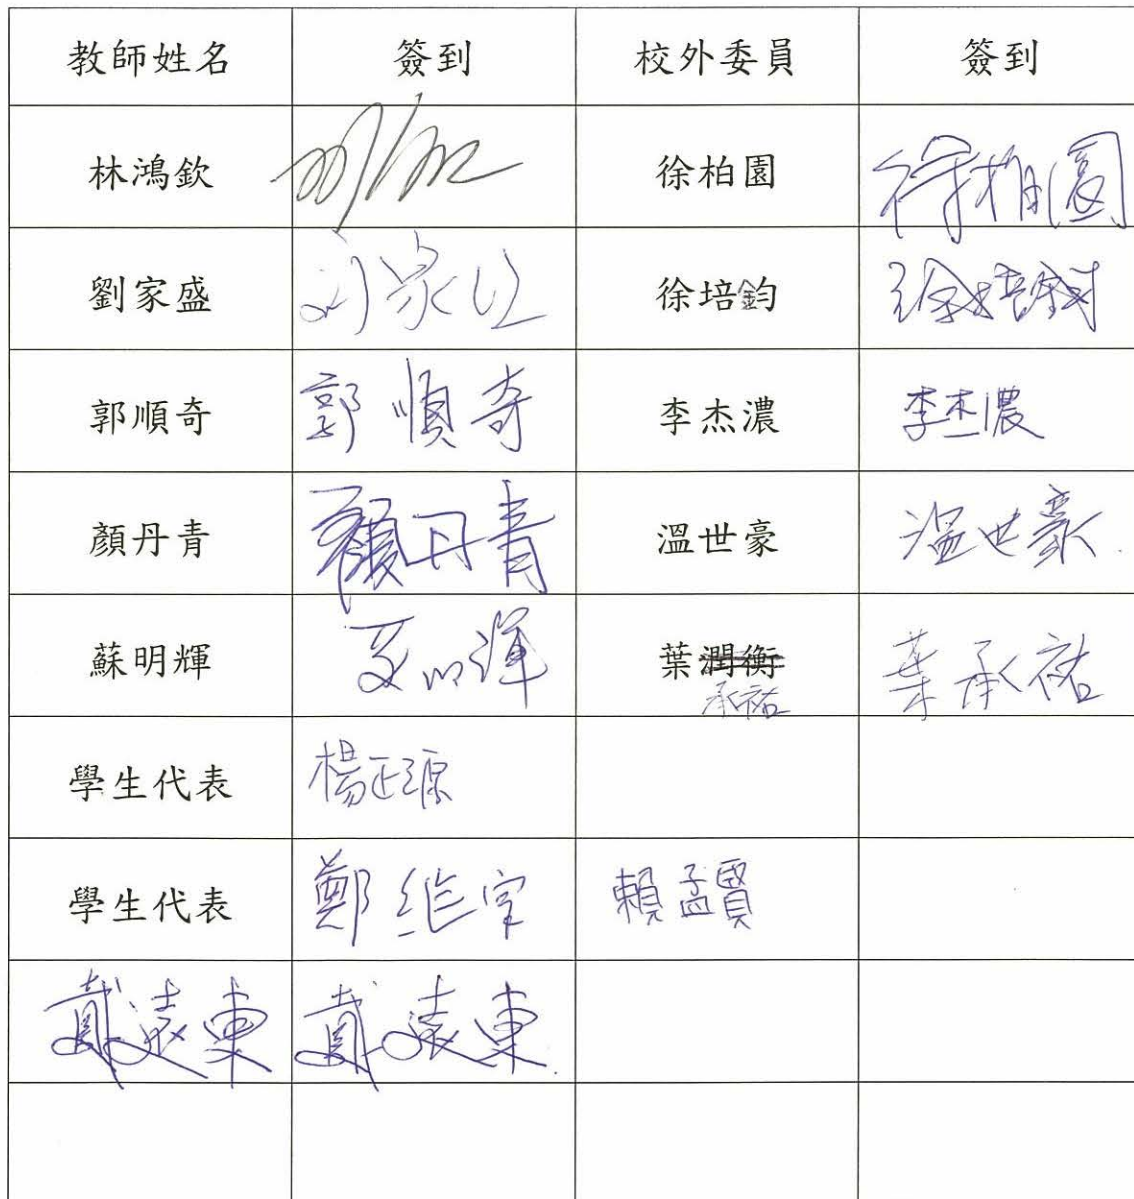 教師姓名 簽到 校外委員 簽到
林鴻欽 徐柏園 徐柏園
劉家盛 刘家 徐培鈞 徐培鈞
郭順奇 郭順奇 李杰濃 李杰濃
顏丹青 顏丹青 溫世豪 溫世豪
蘇明輝 葉潤衡 葉承祐
承祐
學生代表 楊正源
學生代表 鄭維 賴孟賢
戴遠東 戴遠東